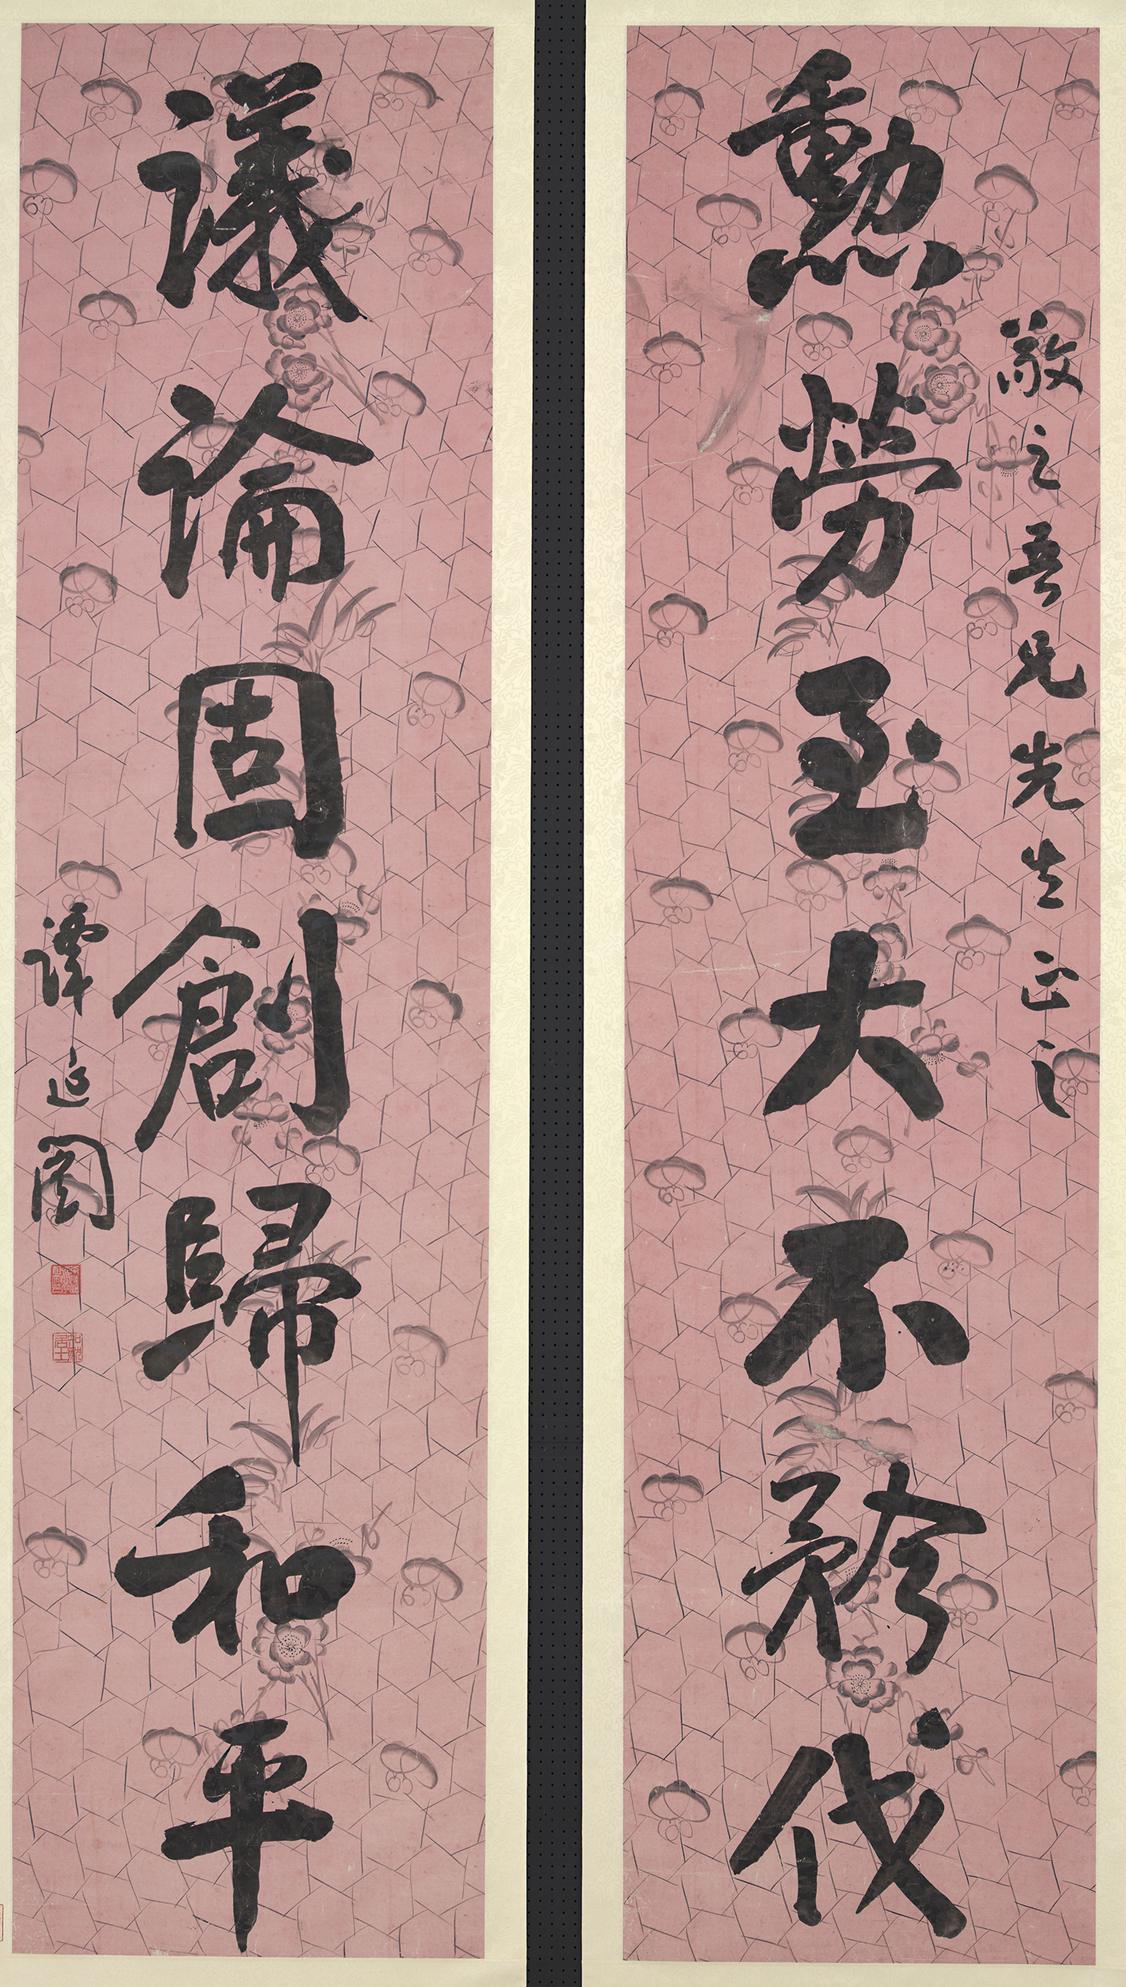 敬之吾兄先生正之
勲勞至大不矜伐
議論固創歸和平
譚延闓